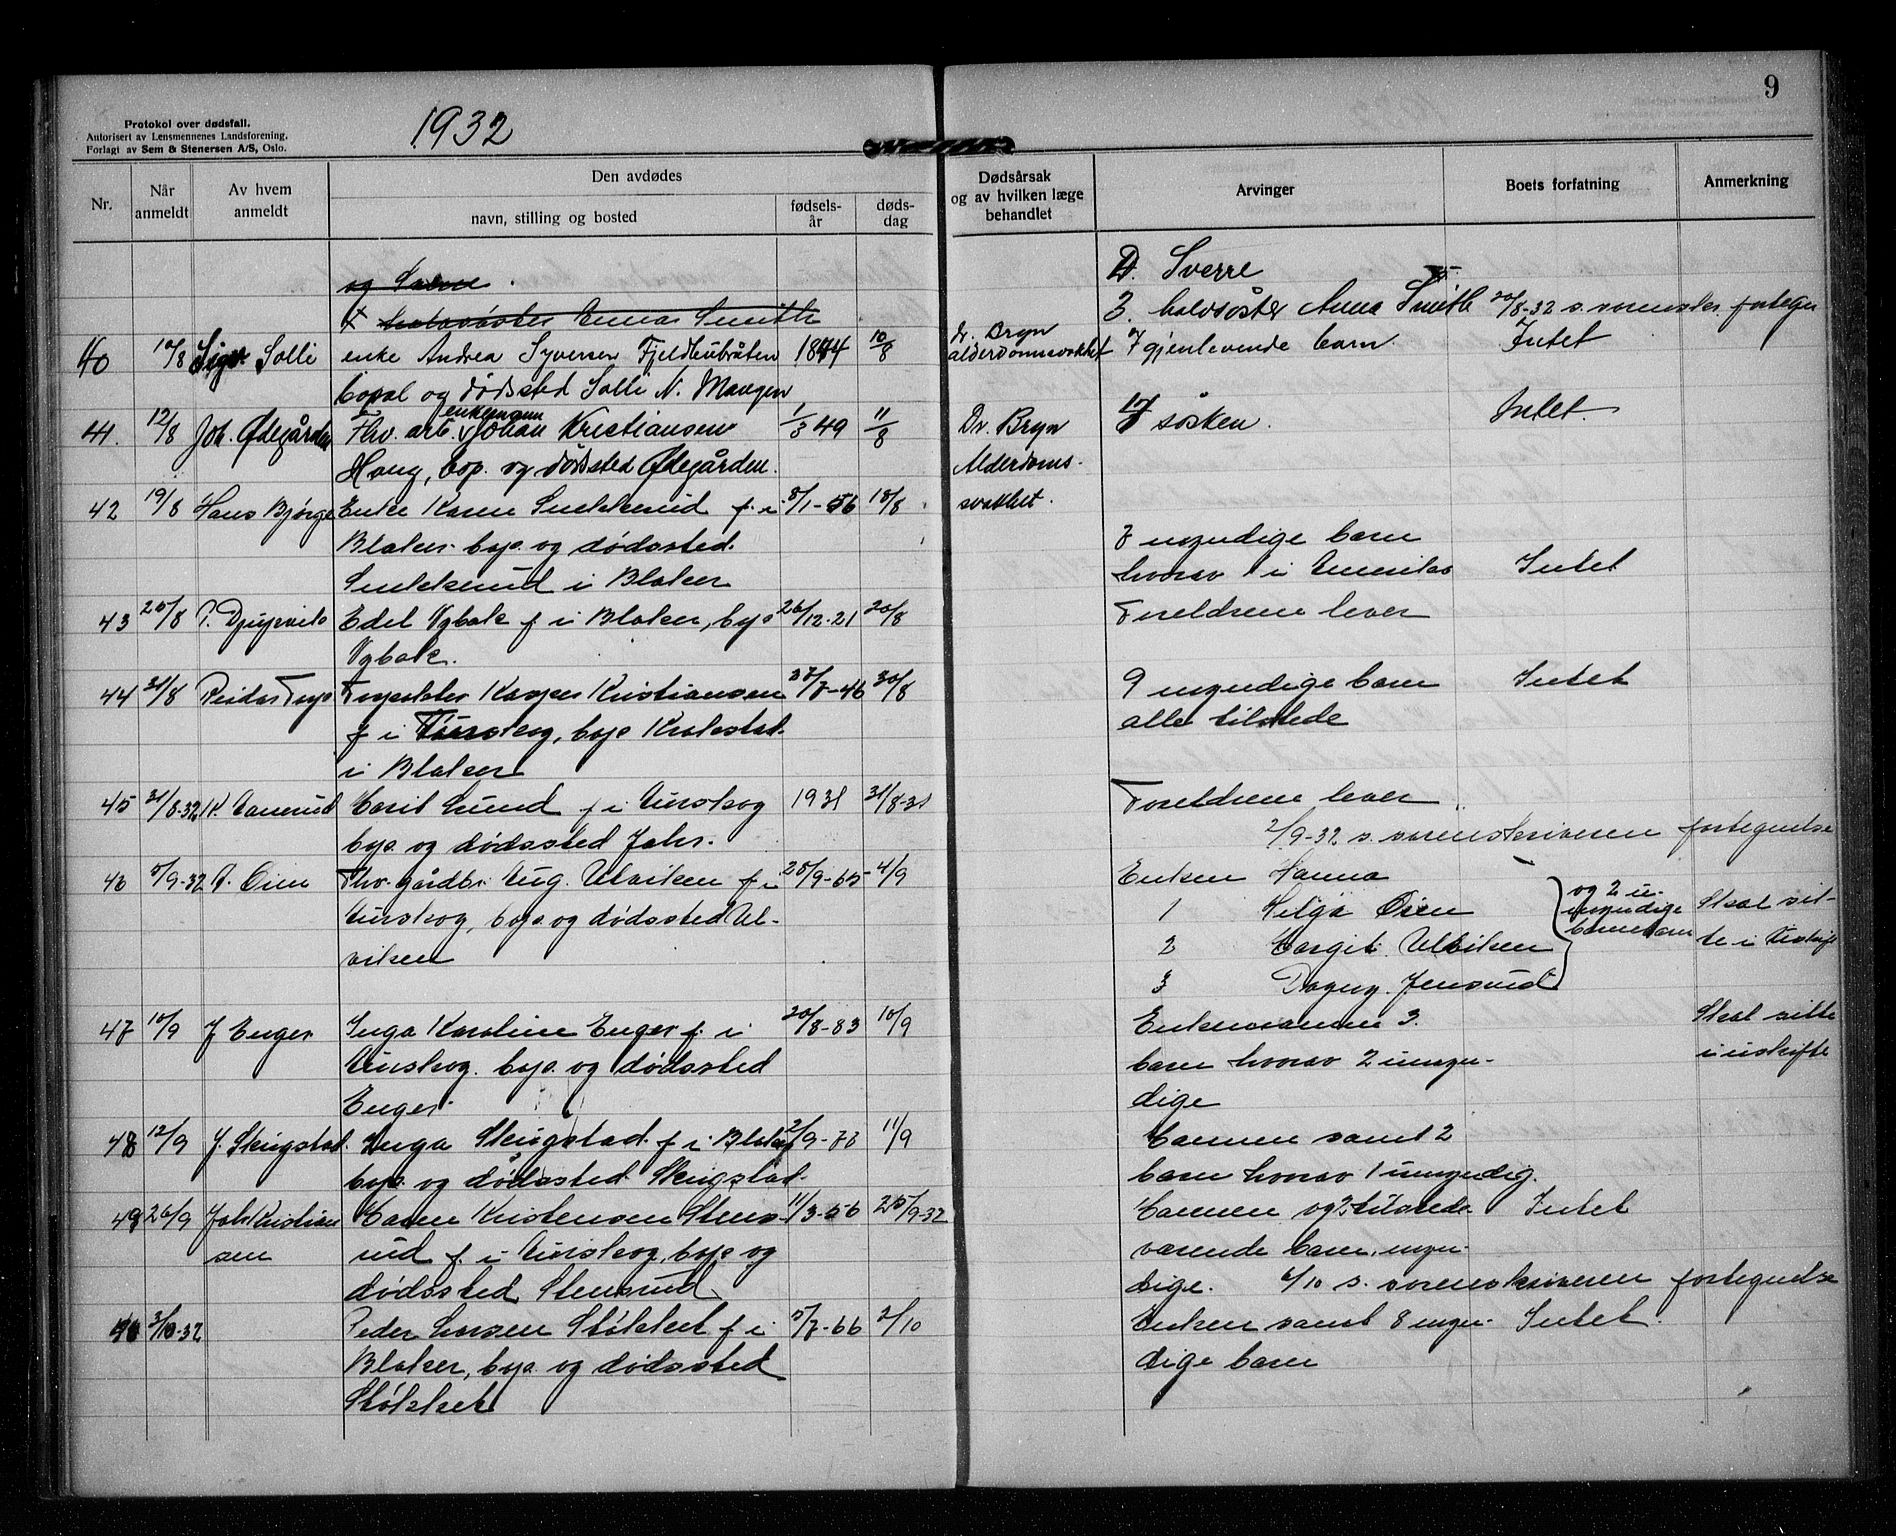 9
Protokol over dødsfall.
Autorisert av Lensmennenes Landsforening.
Forlagt av Sem & Stenersen A/S, Oslo.
1932
Nr.
Når anmeldt
Av hvem anmeldt
Den avdødes
navn, stilling og bosted
fødsels-år
døds-dag
Dødsårsak og av hvilken læge behandlet
Arvinger
Boets forfatning
Anmerkning
og Sverre
D. Sverre
halvsöster Anna Smith
3. halvsöster Anna Smith 20/8-32 s. sorenskr. forteg
40 12/8 Sigv. Solli enke Andrea Syversen Fjeldhubråten 1844 10/8 Dr. Bryn alderdomssvakhet 7 gjenlevende barn Intet
bopæl og dödssted Solli N. Mangen
enkemann
41. 12/8 Joh. Ødegården Fhv. arb. Johan Kristiansen 1/3 49 11/8 Dr. Bryn søsken. Intet
Haug, bop. og dödssted Ødegården. Alderdoms-
42 19/8 Hans Bjørge Enke Karen Snekkerud f. i 8/1-56 18/8 svakhet.
Blaker. bop. og dödssted. 3 myndige barn
Snekkerud i Blaker hvorav 1 i Amerika Intet
43 20/8 P. Edel Vybak f i Blaker, bop 26/12-21 20/8 Foreldrene lever
Vybak.
44 31/8 Reidar Kasper Kristiansen 27/7-46 30/8 9 myndige barn Intet
f i Aurskog, bop alle tilstede
i Blaker
45 31/8-32 K. Marit Lund f i Aurskog 1931 31/8-31 Foreldrene lever
bop. og dødssted Jahr. 2/9-32 s. sorenskriveren fortegnelse
46 5/9-32 Fhv. gårdbr. Aug. Ulviken f i 25/9-65 4/9 Enken Hanna
Aurskog, bop. og dødssted Ul- 1 Helga Øien og 2 u- Skal sit-
2 Margit Ulviken myndige te i Uskifte
viken barnebarn
3 Dagny Jensrud
47 10/9 J Enger Inga Karoline Enger f. i 20/8-83 10/9 Enkemannen 3. Skal sitte
Aurskog. bop. og dødssted barn hvorav 2 umyn- i uskifte
Enger. dige
48 12/9 J. Skrigstad. Inga Skrigstad. f i Blaker 11/9 Mannen samt 2
bop. og dødssted Skrigstad. barn hvorav 1 umyndig.
49 26/9 Johs Kristian Maren Kristensen Stens- 11/3-56 25/9-32 Mannen og 2 tilstede Intet
sen rud f. i Aurskog, bop. og værende barn, myn-
dødssted Stensrud dige. 6/10 s. sorenskriveren fortegnelse
3/10-32 Peder Larsen Stölkket f i 5/7-66 2/10 Enken samt 8 myn- Intet.
Blaker, bop. og dødssted dige barn
Stölkket